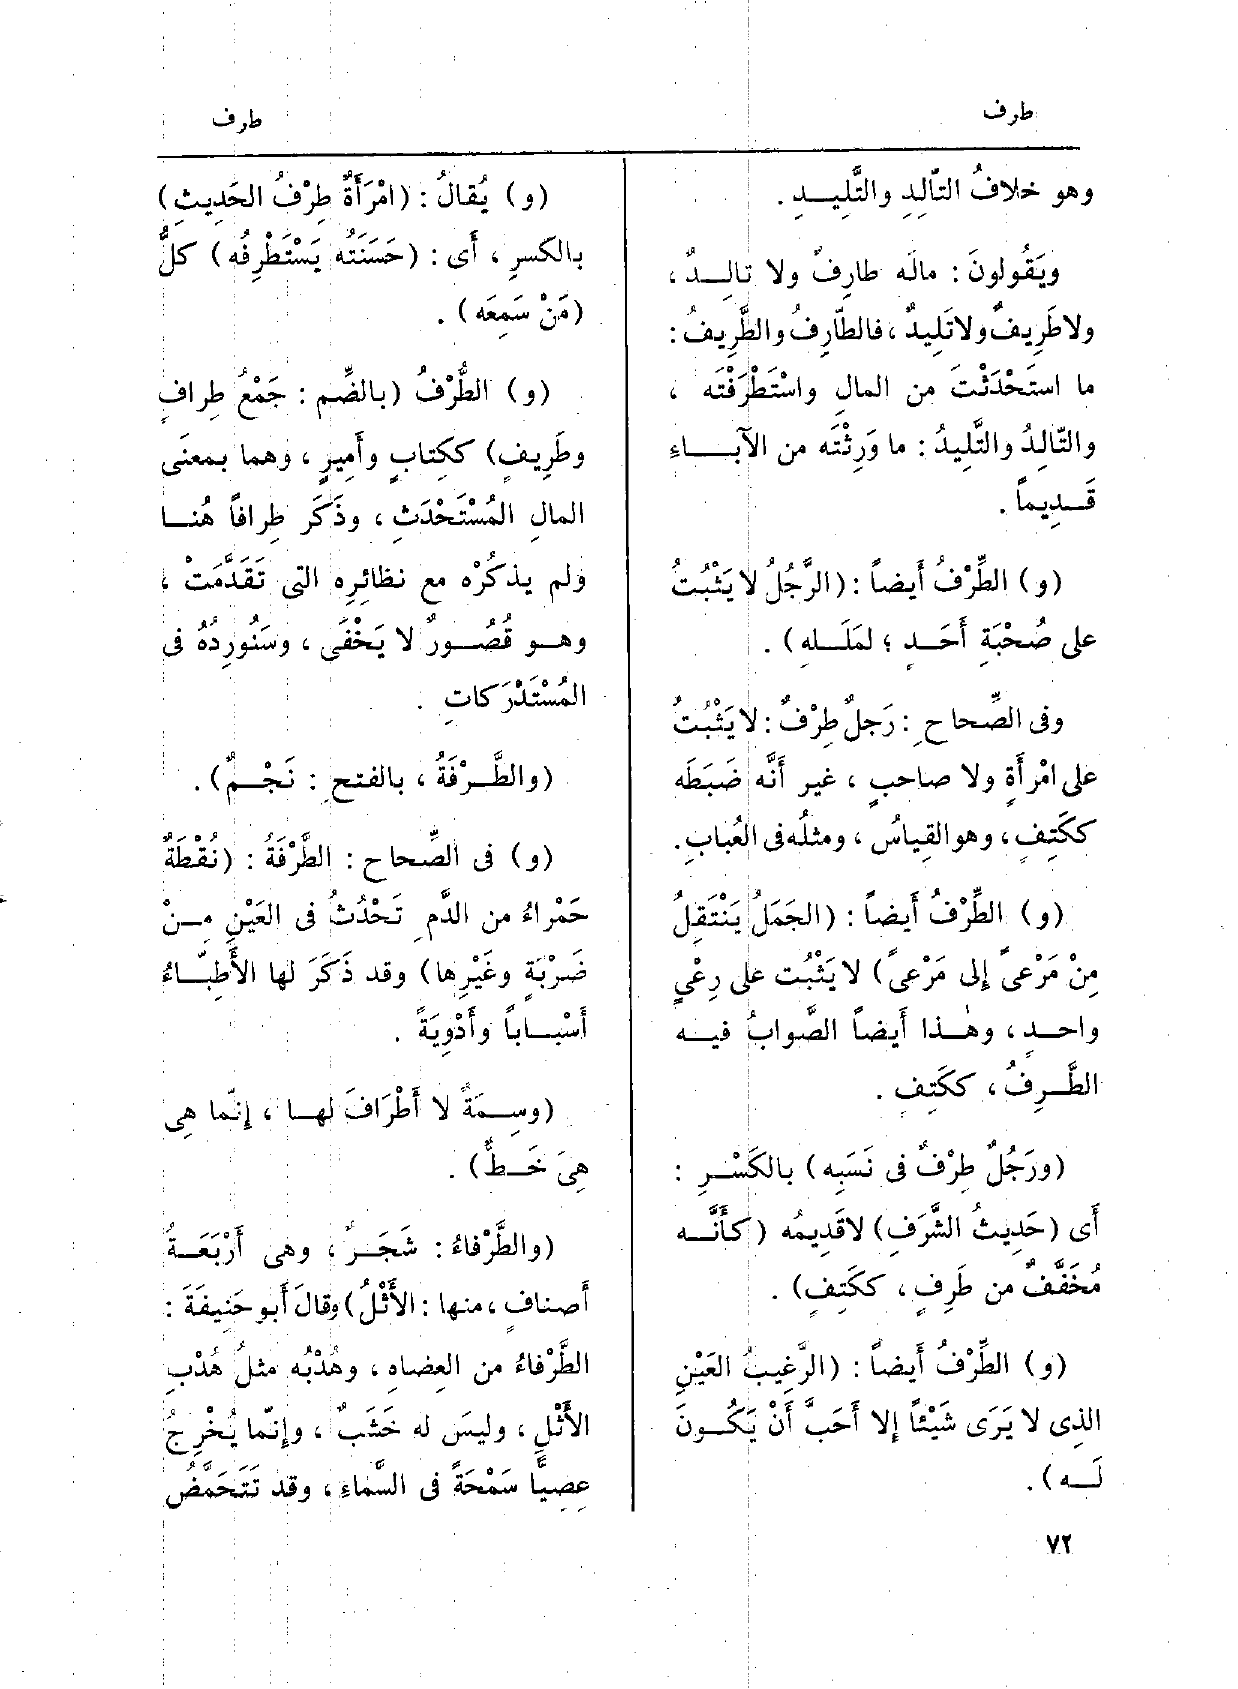 طرف
طرف
وهو خلافُ التّالِدِ والتَّلِيدِ .
ويَقُولونَ : مالَه طارِفٌ ولا تالِدٌ ،
ولا طَرِيفٌ ولا تَلِيدٌ ، فالطّارِفُ والطَّرِيفُ :
ما استَحْدَثْتَ من المالِ واسْتَطْرَفْتَه ،
والتّالِدُ والتَّلِيدُ : ما وَرِثْتَه من الآباء
قَدِيماً .
(و) الطِّرْفُ أَيضاً : (الرَّجُلُ لا يَثْبُتُ
على صُحْبَةِ أَحَدٍ ؛ لمَلَلِهِ) .
وفى الصِّحاحِ : رَجلٌ طِرْفٌ : لا يَثْبُتُ
على امْرأَةٍ ولا صاحبٍ ، غير أَنَّه ضَبَطَه
ككَتِفٍ ، وهو القِياسُ ، ومثلُه فى العُبابِ .
(و) الطِّرْفُ أَيضاً : (الجَمَلُ يَنْتَقِلُ
مِنْ مَرْعىً إِلى مَرْعىً) لا يَثْبُت على رِعْىٍ
واحدٍ ، وهٰذا أَيضاً الصَّوابُ فيه
الطَّرِفُ ، ككَتِفٍ .
(ورَجُلٌ طِرْفٌ فى نَسَبِه) بالكَسْرِ :
أَى (حَدِيثُ الشَّرَفِ) لا قَدِيمُه (كأَنَّه
مُخَفَّفٌ من طَرِفٍ ، ككَتِفٍ) .
(و) الطِّرْفُ أَيضاً : (الرَّغِيبُ العَيْنِ
الذِى لا يَرَى شَيْئاً إِلا أَحَبَّ أَنْ يَكُونَ
لَه) .
(و) يُقالُ : (امْرَأَةٌ طِرْفُ الحَدِيثِ)
بالكسرِ ، أَى : (حَسَنَتُه يَسْتَطْرِفُه) كلُّ
(مَنْ سَمِعَه) .
(و) الطُّرْفُ (بالضَّم : جَمْعُ طِرافٍ
وطَرِيفٍ) ككِتابٍ وأَمِيرٍ ، وهما بمعنَى
المالِ المُسْتَحْدَثِ ، وذَكَر طِرافاً هُنا
ولم يذكُرْه مع نظائِرِه التى تَقَدَّمَتْ ،
وهو قُصُورٌ لا يَخْفَى ، وسَنُورِدُهُ فى
المُسْتَدْرَكاتِ .
(والطَّرْفَةُ ، بالفتحِ : نَجْمٌ) .
(و) فى الصِّحاح : الطَّرْفَةُ : (نُقْطَةٌ
حَمْراءُ من الدَّمِ تَحْدُثُ فى العَيْنِ مِنْ
ضَرْبَةٍ وغَيْرِها) وقد ذَكَرَ لها الأَطِبّاءُ
أَسْباباً وأَدْوِيَةً .
(وسِمَةٌ لا أَطْرَافَ لها ، إِنّما هِى
هِىَ خَطٌّ) .
(والطَّرْفاءُ : شَجَرٌ ، وهى أَرْبَعَةُ
أَصنافٍ ، منها : الأَثْلُ) وقالَ أَبو حَنِيفَةَ :
الطَّرْفاءُ من العِضاهِ ، وهُدْبُه مثلُ هُدْبِ
الأَثْلِ ، وليسَ له خَشَبٌ ، وإِنّما يُخْرِجُ
عِصِيًّا سَمْحَةً فى السَّماءِ ، وقد تَتَحَمَّضُ
٧٢